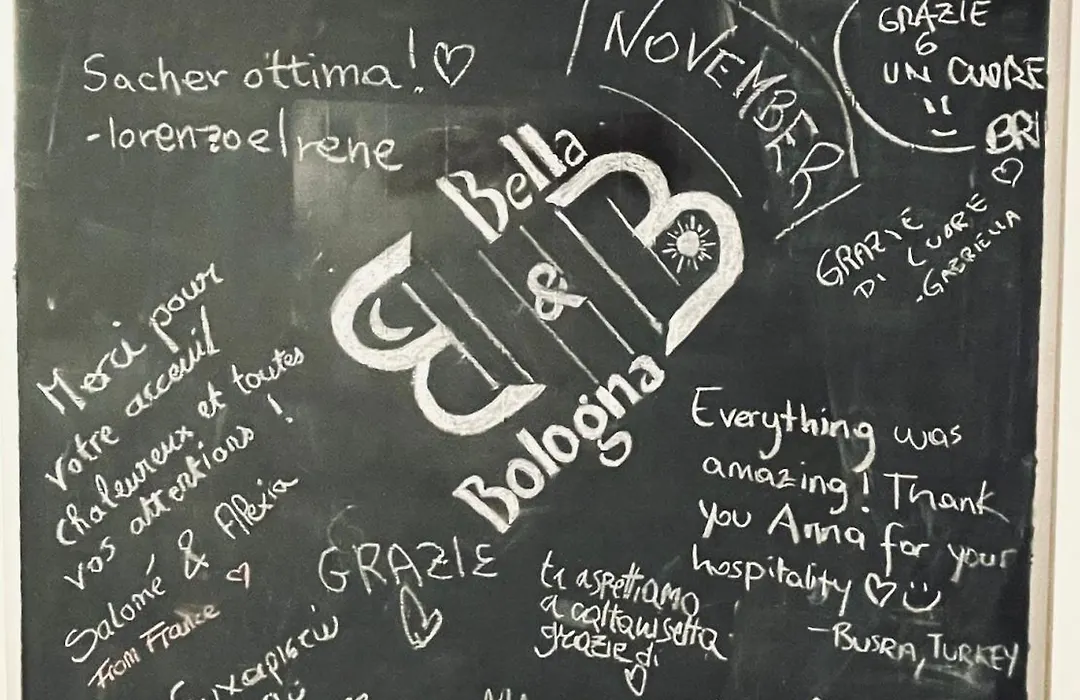 Sacher ottima!
-lorenzo e Irene
NOVEMBER
GRAZIE
6
UN CUORE
BRI
GRAZIE
DI CUORE
-GABRIELLA
Bella
B & B
Bologna
Merci pour
votre acceuil
chaleureux et toutes
vos attentions !
Salomé & Alexia
From France
GRAZIE
Everything was
amazing! Thank
you Anna for your
hospitality
-BUSRA, TURKEY
ti aspettiamo
a caltanisetta
grazie di
Ευχαριστώ